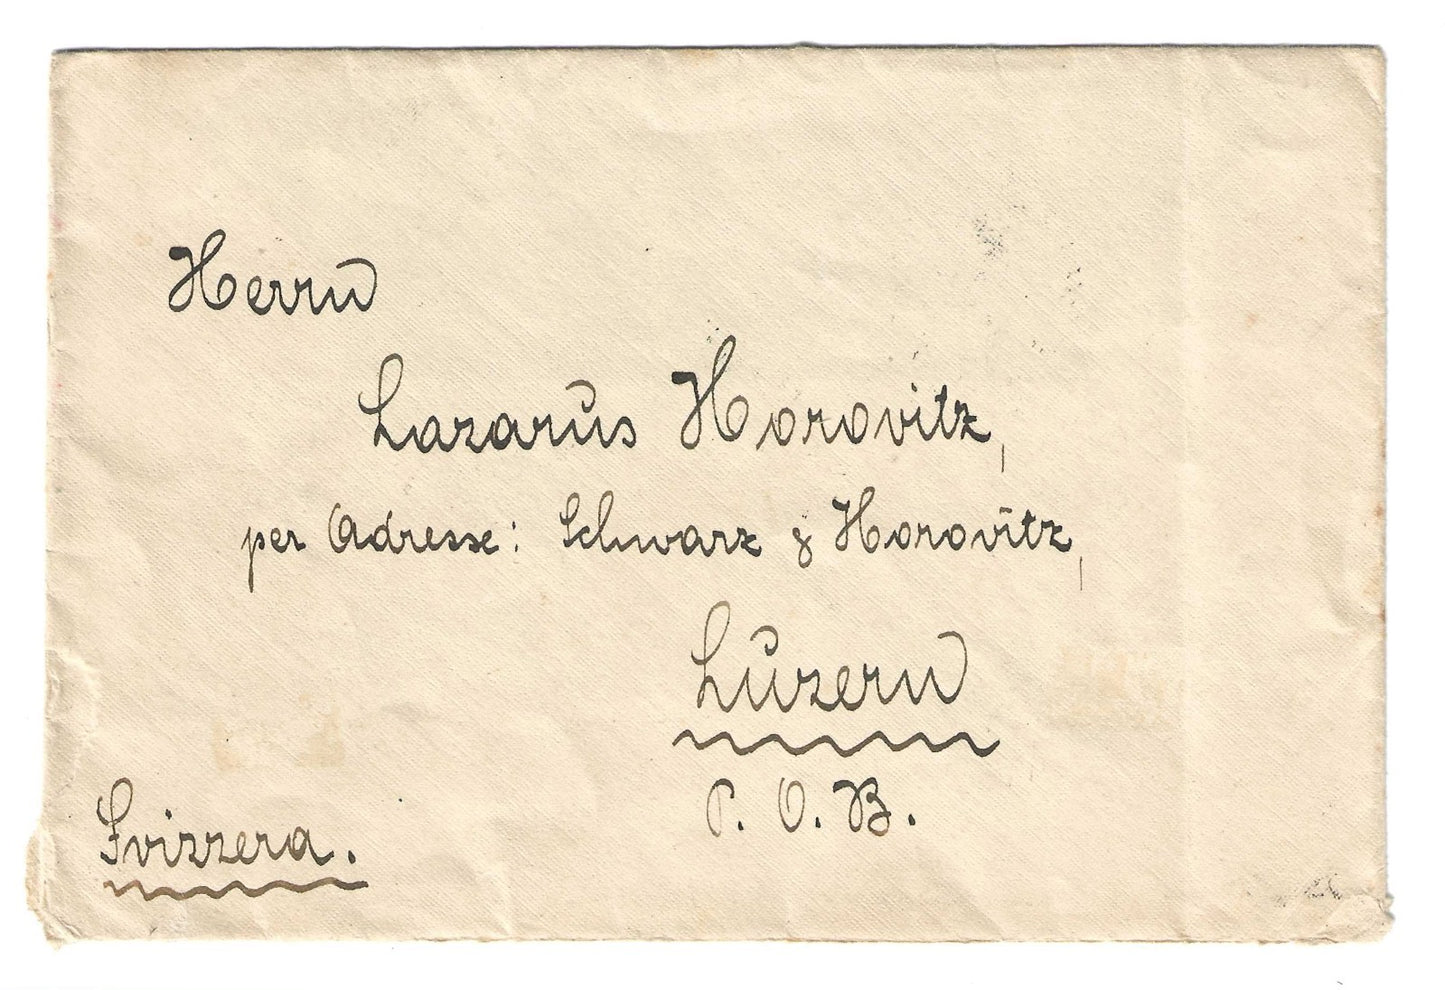 Herrn
Lazarus Horovitz,
per Adresse: Schwarz & Horovitz,
Luzern
P. O. B.
Svizzera.